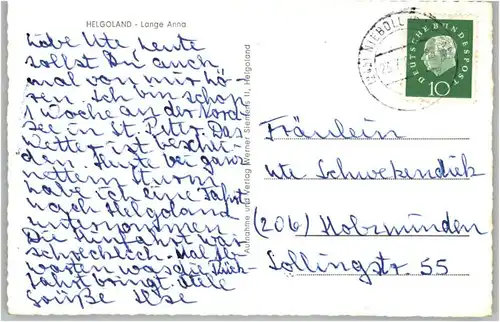 HELGOLAND - Lange Anna
Liebe Ute heute
sollst Du auch
mal von mir hö-
ren. Ich bin schon
1 Woche an der Nord
see in St. Peter. Das
Wetter ist beschei-
den. Heute bei ganz
nettem Sturm
habe ich eine Fahrt
nach Helgoland
unternommen
Die Hinfahrt war
schrecklich. Mal ab-
warten was die Rück-
fahrt bringt. Viele
Grüße Ilse
Aufnahme und Verlag Werner Siemers II, Helgoland
NIEBÜLL
DEUTSCHE BUNDESPOST
10
Fräulein
Ute Schwekendiek
(206) Holzminden
Sollingstr. 55